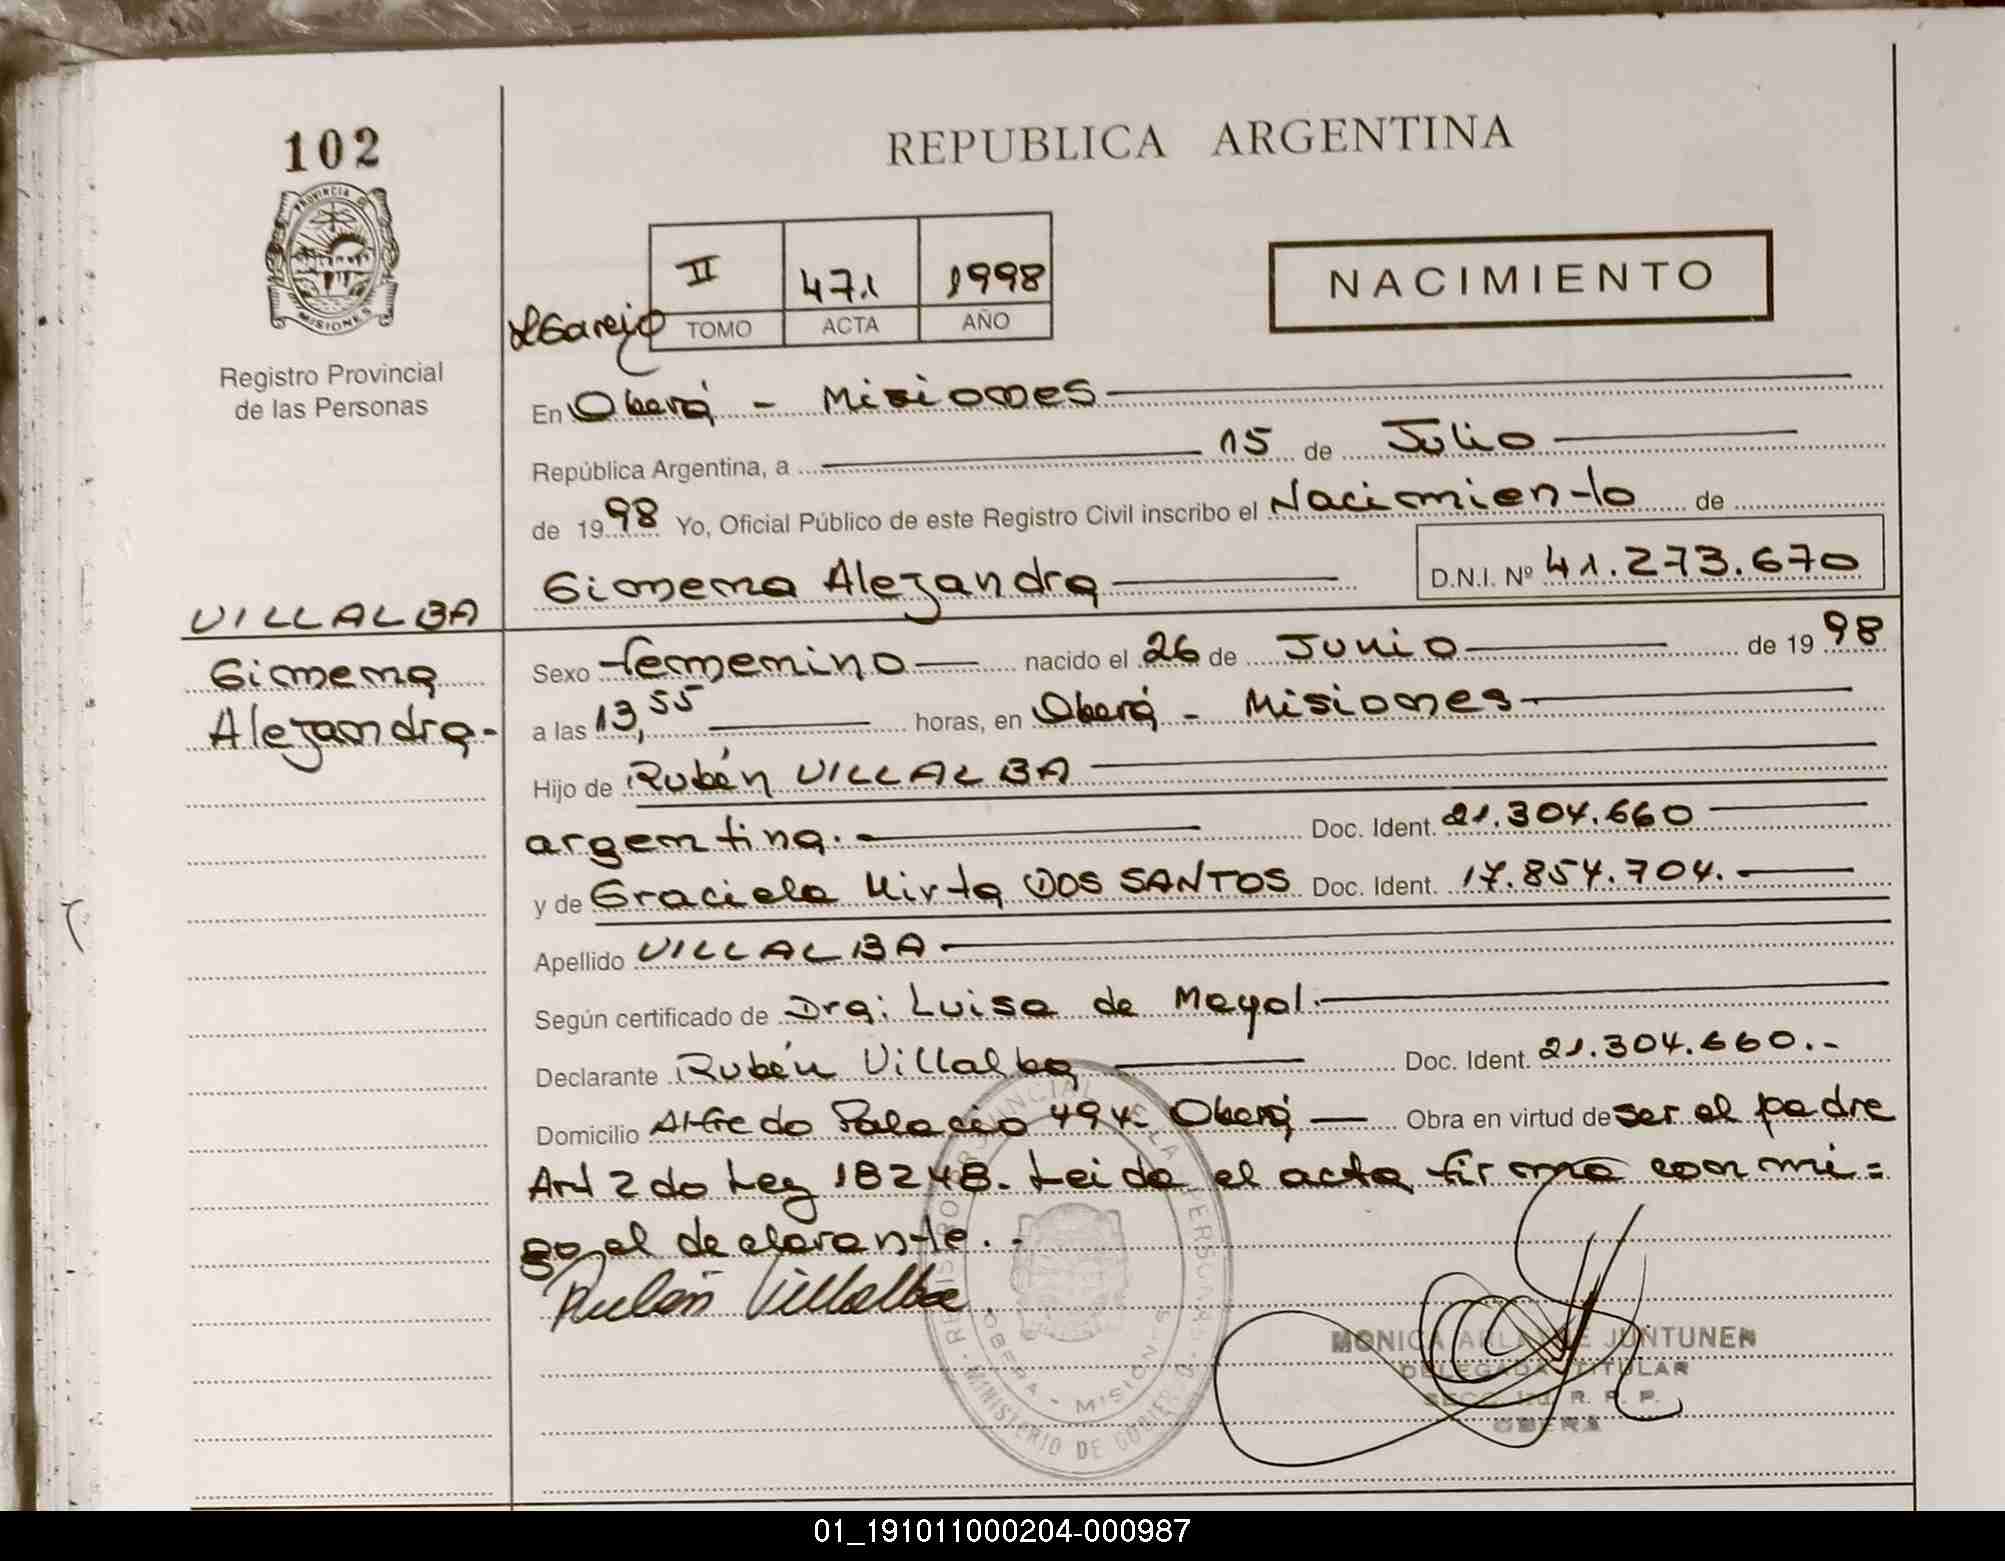 102
PROVINCIA DE
MISIONES
Registro Provincial
de las Personas
REPUBLICA ARGENTINA
II 471 1998
TOMO ACTA AÑO
NACIMIENTO
En Oberá - Misiones
República Argentina, a 15 de Julio
de 1998 Yo, Oficial Público de este Registro Civil inscribo el Nacimiento de
Gimena Alejandra D.N.I. Nº 41.273.670
VILLALBA
Gimena
Alejandra-
Sexo femenino nacido el 26 de Junio de 1998
a las 13,55 horas, en Oberá - Misiones
Hijo de Rubén VILLALBA
argentina. Doc. Ident. 21.304.660
y de Graciela Mirta DOS SANTOS Doc. Ident. 17.854.704.
Apellido VILLALBA
Según certificado de Dra: Luisa de Mayol.
Declarante Rubén Villalba Doc. Ident. 21.304.660.-
Domicilio Alfredo Palacio 494. Oberá Obra en virtud de ser el padre
Art 2do Ley 18248. Leida el acta firma conmi=
go el declarante.-
Rubén Villalba
REGISTRO PROVINCIAL DE LAS PERSONAS
OBERA - MISIONES
MINISTERIO DE GOBIERNO
MONICA JUNTUNEN
DELEGADA TITULAR
SECC. R. P. P.
OBERA
01_191011000204-000987